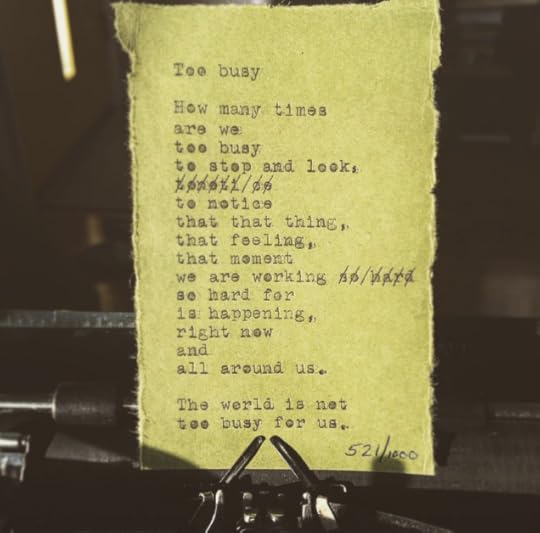 Too busy
How many times
are we
too busy
to stop and look,
to notice
that that thing,
that feeling,
that moment
we are working so/hard
so hard for
is happening,
right now
and
all around us.
The world is not
too busy for us.
521/1000